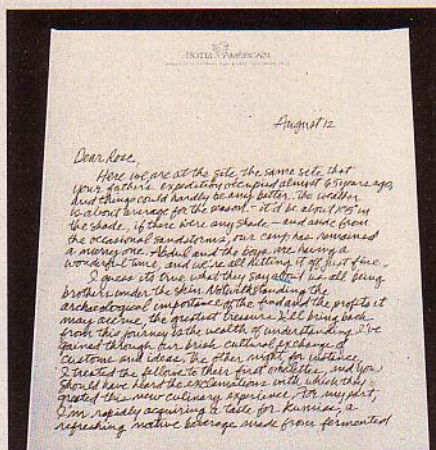 HOTEL AMERICAIN
August 12
Dear Rose,
Here we are at the site, the same site that
your father's expedition occupied almost 65 years ago,
and things could hardly be any better. The weather
is about average for the season - it'd be about 115 in
the shade, if there were any shade - and aside from
the occasional sandstorms, our camp has remained
a merry one. Abdul and the boys are having a
wonderful time, and we're all hitting it off just fine.
I guess it's true what they say about us all being
brothers under the skin. Notwithstanding the
archaeological importance of the find and the profits it
may accrue, the greatest treasure I'll bring back
from this journey is the wealth of understanding I've
gained through our brisk cultural exchange of
customs and ideas. The other night, for instance,
I treated the fellows to their first omelettes, and you
should have heard the exclamations with which they
greeted this new culinary experience. For my part,
I'm rapidly acquiring a taste for kumiss, a
refreshing native beverage made from fermented